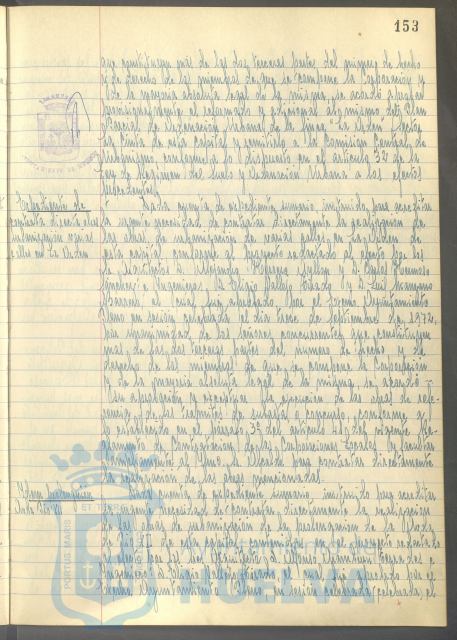 153
que constituyen más de las dos terceras partes del número de hecho
y de derecho de los miembros de que se compone la Corporación y
de la mayoría absoluta legal de la misma, se acordó aprobar
provisionalmente el reformado y adicional al mismo del Plan
Parcial de Ordenación Urbana de la finca "La Orden" Sector
de esta capital y remitirlo a la Comisión Central de
Urbanismo conforme a lo dispuesto en el artículo 32 de la
Ley de Régimen del Suelo y Ordenación Urbana a los efectos
procedentes.
Expediente de
contrata directa obras
urbanización varias
calles en La Orden
Dada cuenta de expediente sumario instruido para acreditar
la urgente necesidad de contratar directamente la realización de
las obras de urbanización de varias calles en La Orden de
esta capital conforme al proyecto redactado al efecto por los
Sres. Arquitectos D. Alejandro Herrero Ayllón y D. Carlos Hermoso
e Ingenieros D. Eligio Pallejo Tirado y D. Luis Manzano
el cual fue aprobado por el Excmo. Ayuntamiento
Pleno en sesión celebrada el día trece de septiembre de 1972,
por unanimidad de los señores concurrentes que constituyen
más de las dos terceras partes del número de hecho y de
derecho de los miembros de que se compone la Corporación
y de la mayoría absoluta legal de la misma, se acordó
su aprobación y exceptuar la ejecución de las obras de refe-
rencia de los trámites de subasta o concurso, conforme a
lo establecido en el párrafo 3º del artículo 41 del vigente Re-
glamento de Contratación de las Corporaciones Locales y facultar
al Ilmo. Sr. Alcalde para contratar directamente
la realización de las obras mencionadas.
Dada cuenta de expediente sumario instruido para acreditar
la urgente necesidad de contratar directamente la realización
de las obras de urbanización de la prolongación de la Avda.
de Pío XII de esta capital comprendidas en el proyecto redactado
al efecto por los Sres. Arquitecto D. Alfonso
Ingeniero D. Eligio Pallejo Tirado, el cual fue aprobado por el
Excmo. Ayuntamiento Pleno en sesión celebrada celebrada el
PORTUS MARIS ET TERRAE
HUELVA